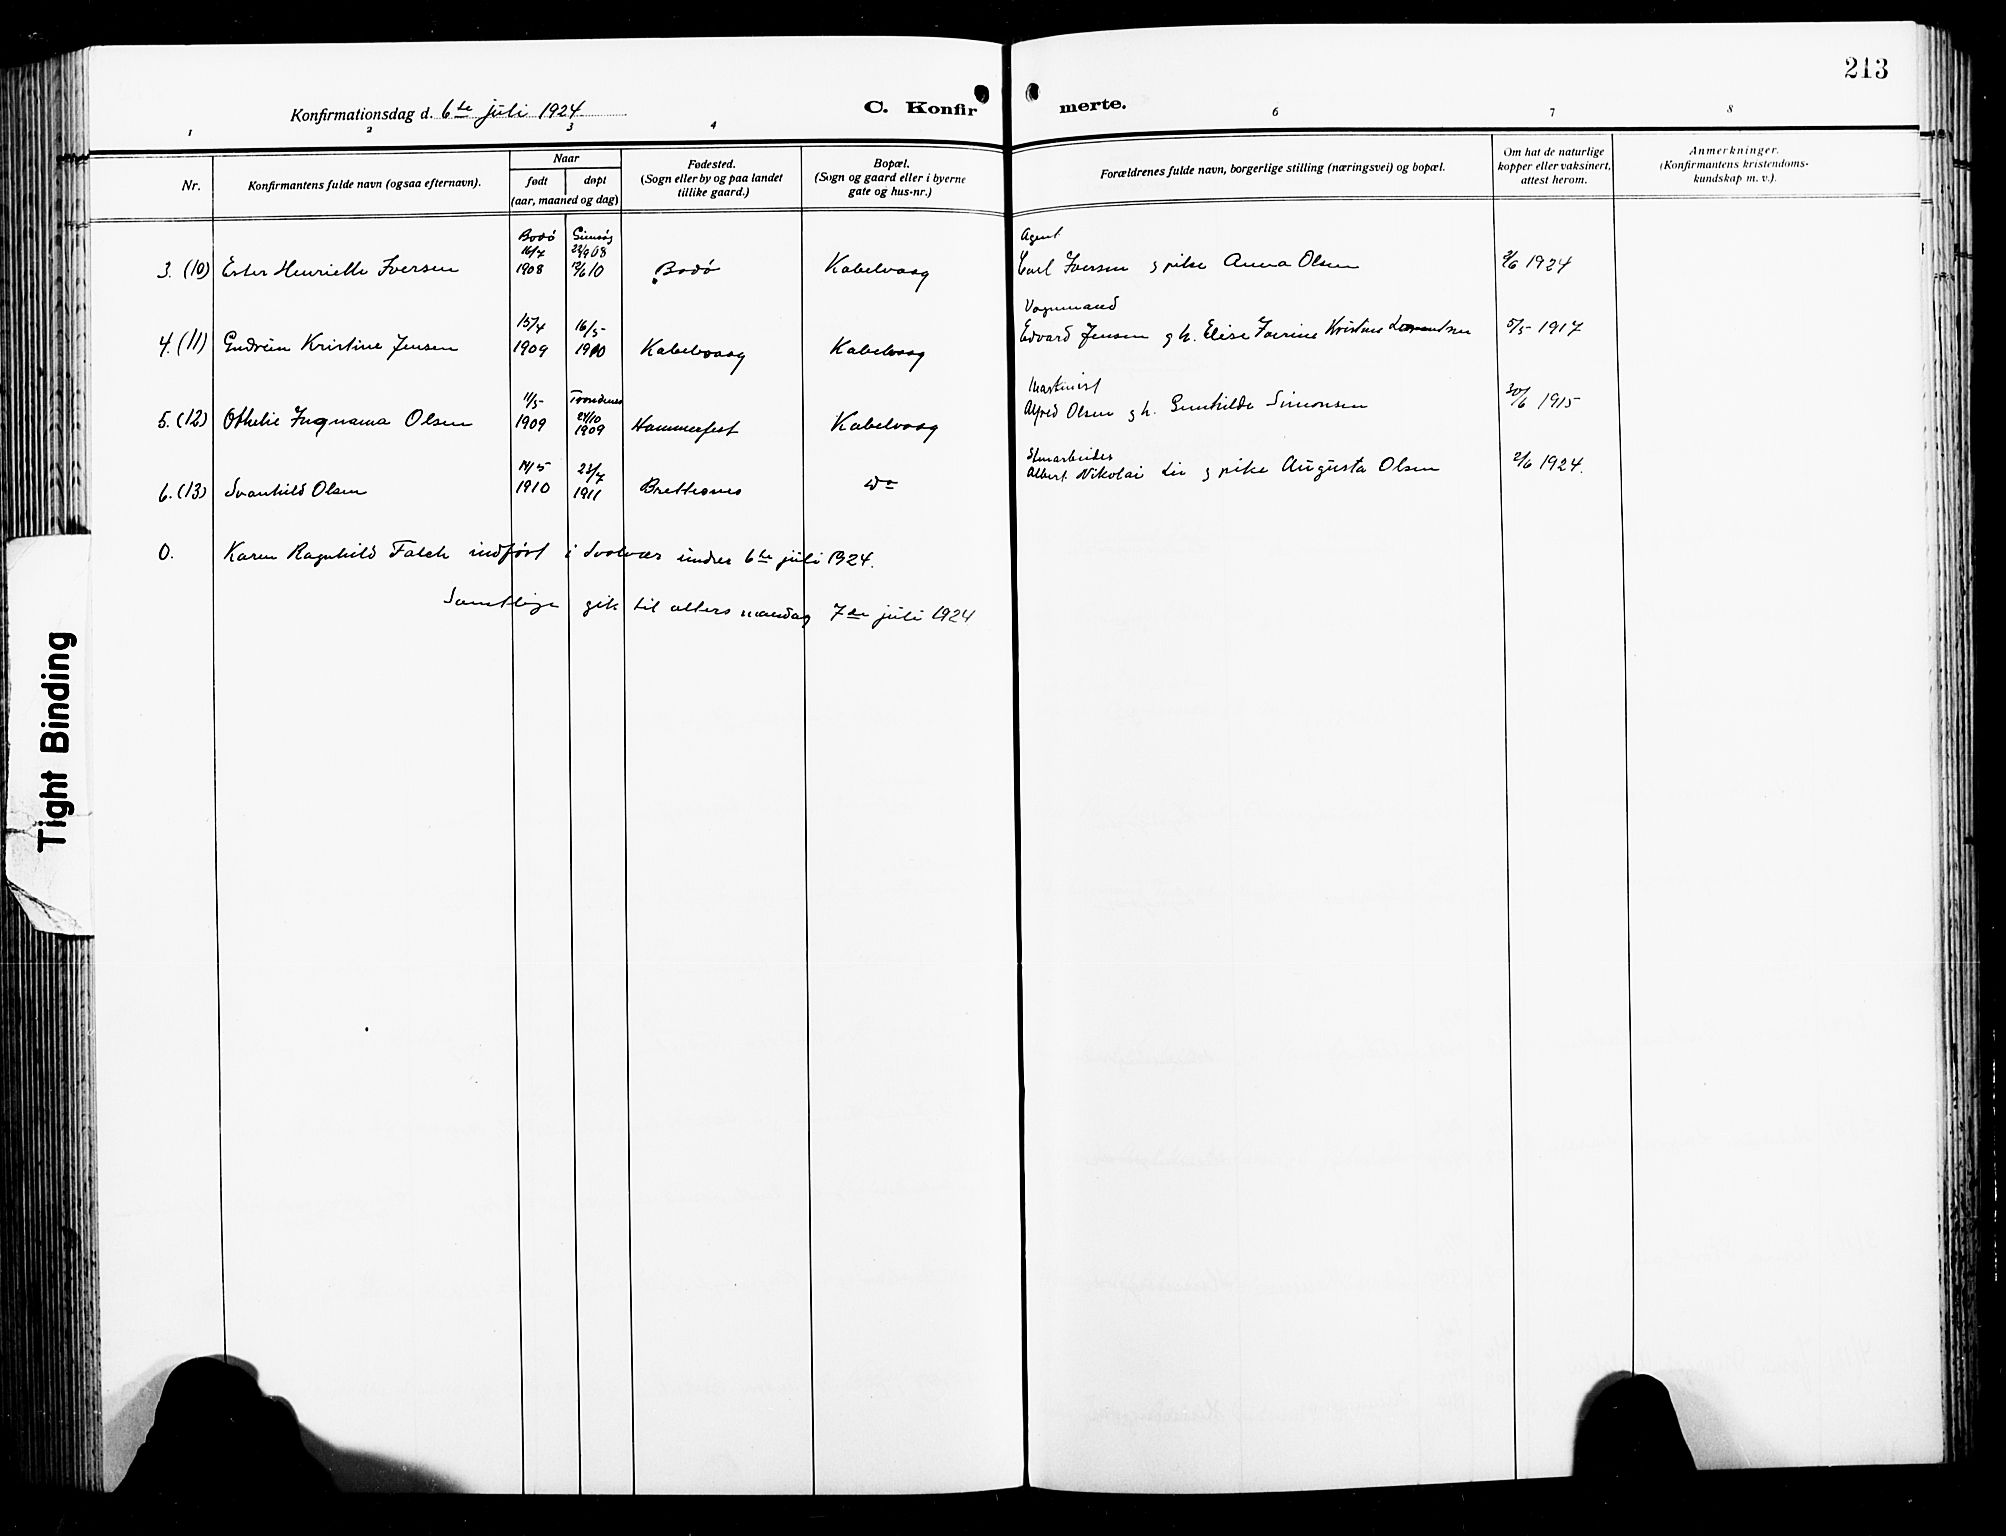 213
Konfirmationsdag d. 6te juli 1924
C. Konfirmerte.
1 2 3 4 6 7 8
Nr.
Konfirmantens fulde navn (ogsaa efternavn).
Naar
født
døpt
(aar, maaned og dag)
Fødested.
(Sogn eller by og paa landet
tillike gaard.)
Bopæl.
(Sogn og gaard eller i byerne
gate og hus-nr.)
Forældrenes fulde navn, borgerlige stilling (næringsvei) og bopæl.
Om hat de naturlige
kopper eller vaksinert,
attest herom.
Anmerkninger.
(Konfirmantens kristendoms-
kundskap m. v.).
Bodø Gimsøy Agent
16/7 22/9 08
3. (10) Ester Henriette Iversen 1908 12/6 10 Bodø Kabelvaag Carl Iversen g pike Anna Olsen 2/6 1924
15/4 16/5 Vognmand
4. (11) Gudrun Kristine Jensen 1909 1910 Kabelvaag Kabelvaag Edvard Jensen g h. Elise Kristine 5/5 1917
11/5 Trondenes Maskinist
24/10
5. (12) Othelie Olsen 1909 1909 Hammerfest Kabelvaag Alfred Olsen g h. Gunhilde Simonsen 30/6 1915
14/5 23/7
6. (13) Svanhild Olsen 1910 1911 Brettesnes Do Albert Nikolai Lie g pike Augusta Olsen 2/6 1924.
0. Karen Ragnhild Falch indført i Svolvær under 6te juli 1924.
Samtlige gik til alters mandag 7de juli 1924
Tight Binding